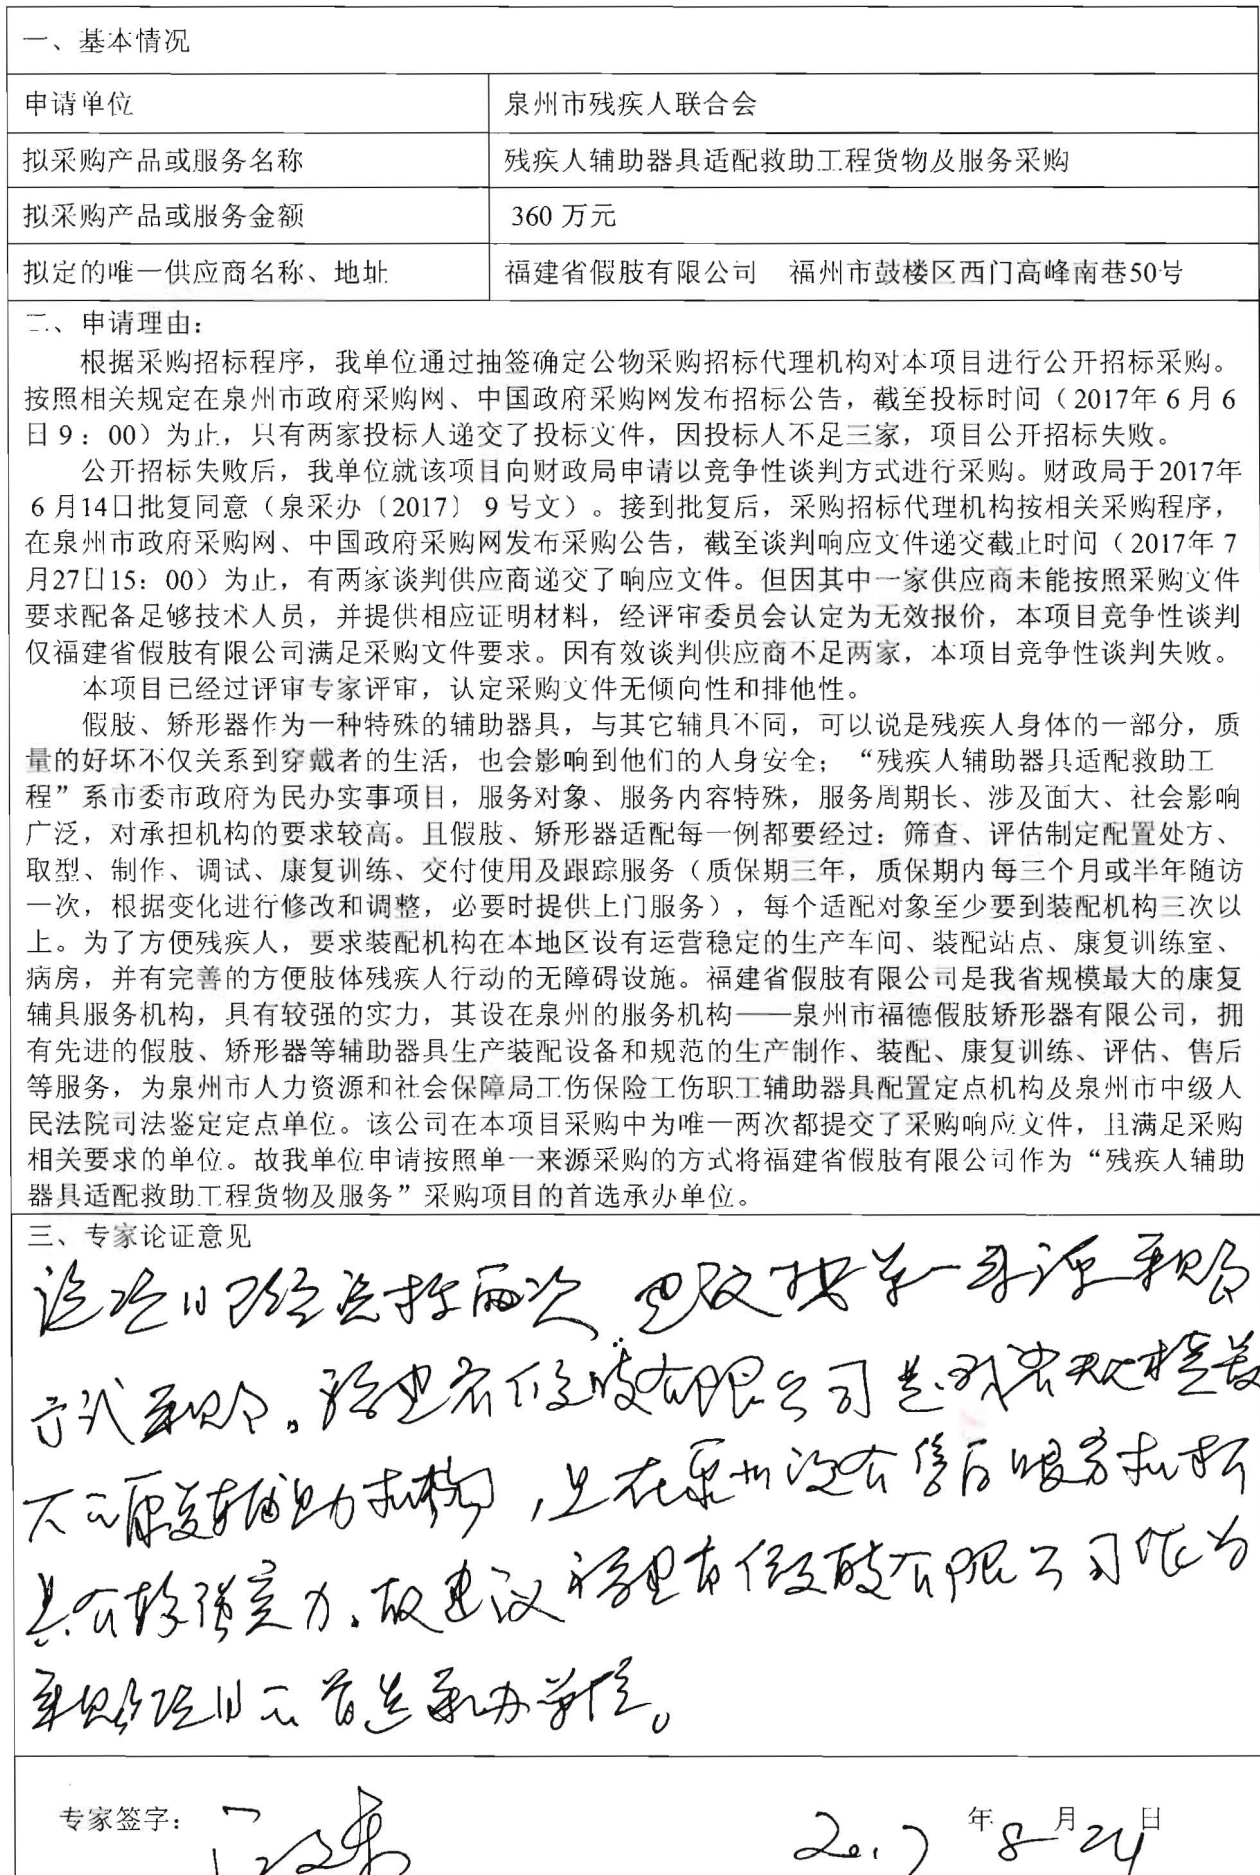 一、基本情况
申请单位 泉州市残疾人联合会
拟采购产品或服务名称 残疾人辅助器具适配救助工程货物及服务采购
拟采购产品或服务金额 360 万元
拟定的唯一供应商名称、地址 福建省假肢有限公司 福州市鼓楼区西门高峰南巷50号
二、申请理由：
根据采购招标程序，我单位通过抽签确定公物采购招标代理机构对本项目进行公开招标采购。
按照相关规定在泉州市政府采购网、中国政府采购网发布招标公告，截至投标时间（2017年 6 月 6
日 9：00）为止，只有两家投标人递交了投标文件，因投标人不足三家，项目公开招标失败。
公开招标失败后，我单位就该项目向财政局申请以竞争性谈判方式进行采购。财政局于2017年
6 月14日批复同意（泉采办〔2017〕9 号文）。接到批复后，采购招标代理机构按相关采购程序，
在泉州市政府采购网、中国政府采购网发布采购公告，截至谈判响应文件递交截止时间（2017年 7
月27日15：00）为止，有两家谈判供应商递交了响应文件。但因其中一家供应商未能按照采购文件
要求配备足够技术人员，并提供相应证明材料，经评审委员会认定为无效报价，本项目竞争性谈判
仅福建省假肢有限公司满足采购文件要求。因有效谈判供应商不足两家，本项目竞争性谈判失败。
本项目已经过评审专家评审，认定采购文件无倾向性和排他性。
假肢、矫形器作为一种特殊的辅助器具，与其它辅具不同，可以说是残疾人身体的一部分，质
量的好坏不仅关系到穿戴者的生活，也会影响到他们的人身安全；“残疾人辅助器具适配救助工
程”系市委市政府为民办实事项目，服务对象、服务内容特殊，服务周期长、涉及面大、社会影响
广泛，对承担机构的要求较高。且假肢、矫形器适配每一例都要经过：筛查、评估制定配置处方、
取型、制作、调试、康复训练、交付使用及跟踪服务（质保期三年，质保期内每三个月或半年随访
一次，根据变化进行修改和调整，必要时提供上门服务），每个适配对象至少要到装配机构三次以
上。为了方便残疾人，要求装配机构在本地区设有运营稳定的生产车间、装配站点、康复训练室、
病房，并有完善的方便肢体残疾人行动的无障碍设施。福建省假肢有限公司是我省规模最大的康复
辅具服务机构，具有较强的实力，其设在泉州的服务机构——泉州市福德假肢矫形器有限公司，拥
有先进的假肢、矫形器等辅助器具生产装配设备和规范的生产制作、装配、康复训练、评估、售后
等服务，为泉州市人力资源和社会保障局工伤保险工伤职工辅助器具配置定点机构及泉州市中级人
民法院司法鉴定定点单位。该公司在本项目采购中为唯一两次都提交了采购响应文件，且满足采购
相关要求的单位。故我单位申请按照单一来源采购的方式将福建省假肢有限公司作为“残疾人辅助
器具适配救助工程货物及服务”采购项目的首选承办单位。
三、专家论证意见
该项目已经流标两次 按单一来源采购
方式采购。福建省假肢有限公司是我省规模最
大的康复辅助机构，且在泉州设有售后服务机构
具有较强实力。故建议福建省假肢有限公司作为
采购项目的首选承办单位。
专家签字： 2017 年 8 月 24 日